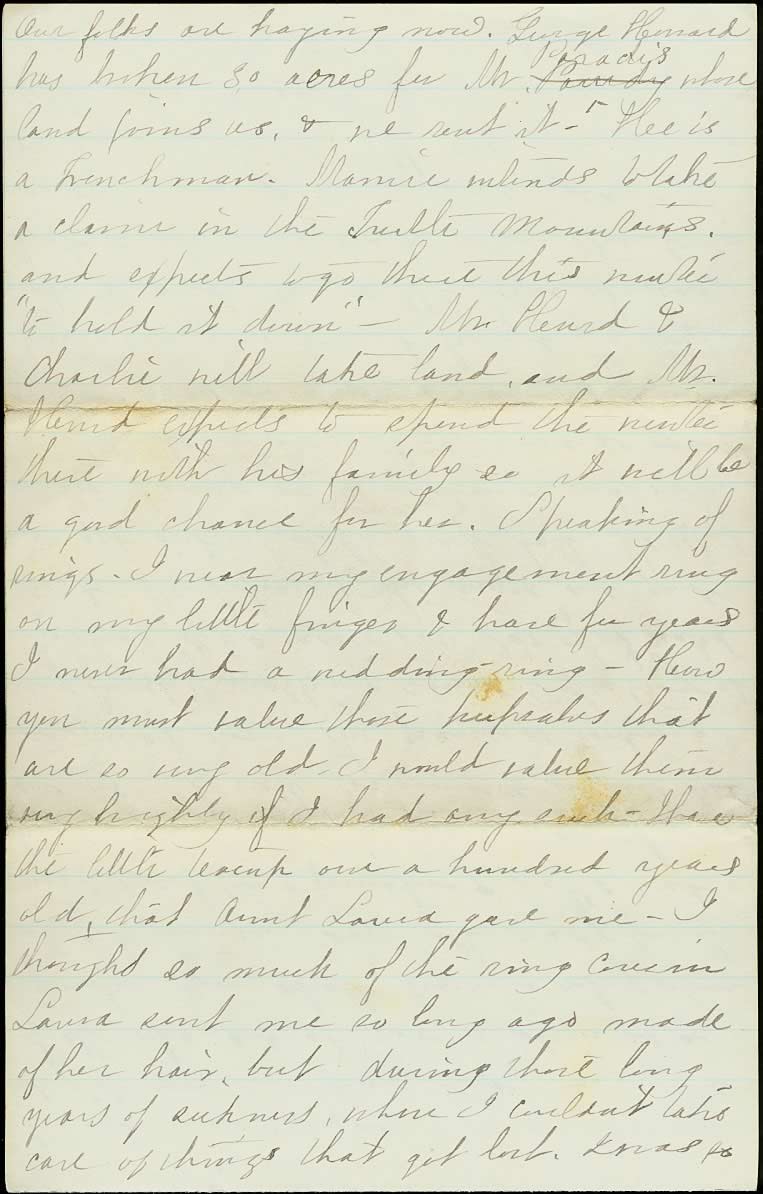 Our folks are haying now. George Howard
has broken 30 acres for Mr. Paradis whose
land joins us, & we rent it - He is
a Frenchman. Mamie intends to take
a claim in the Turtle Mountains.
and expects to go there this winter
"to hold it down" - Mr. Heard &
Charlie will take land, and Mr.
Heard expects to spend the winter
there with his family so it will be
a good chance for her. Speaking of
rings - I wear my engagement ring
on my little finger & have for years
I never had a wedding-ring - How
you must value those keepsakes that
are so very old - I would value them
very highly if I had any such - I have
the little teacup over a hundred years
old, that Aunt Lovisa gave me - I
thought so much of the ring Cousin
Laura sent me so long ago made
of her hair, but during those long
years of sickness, when I couldn't take
care of things that got lost. I was so